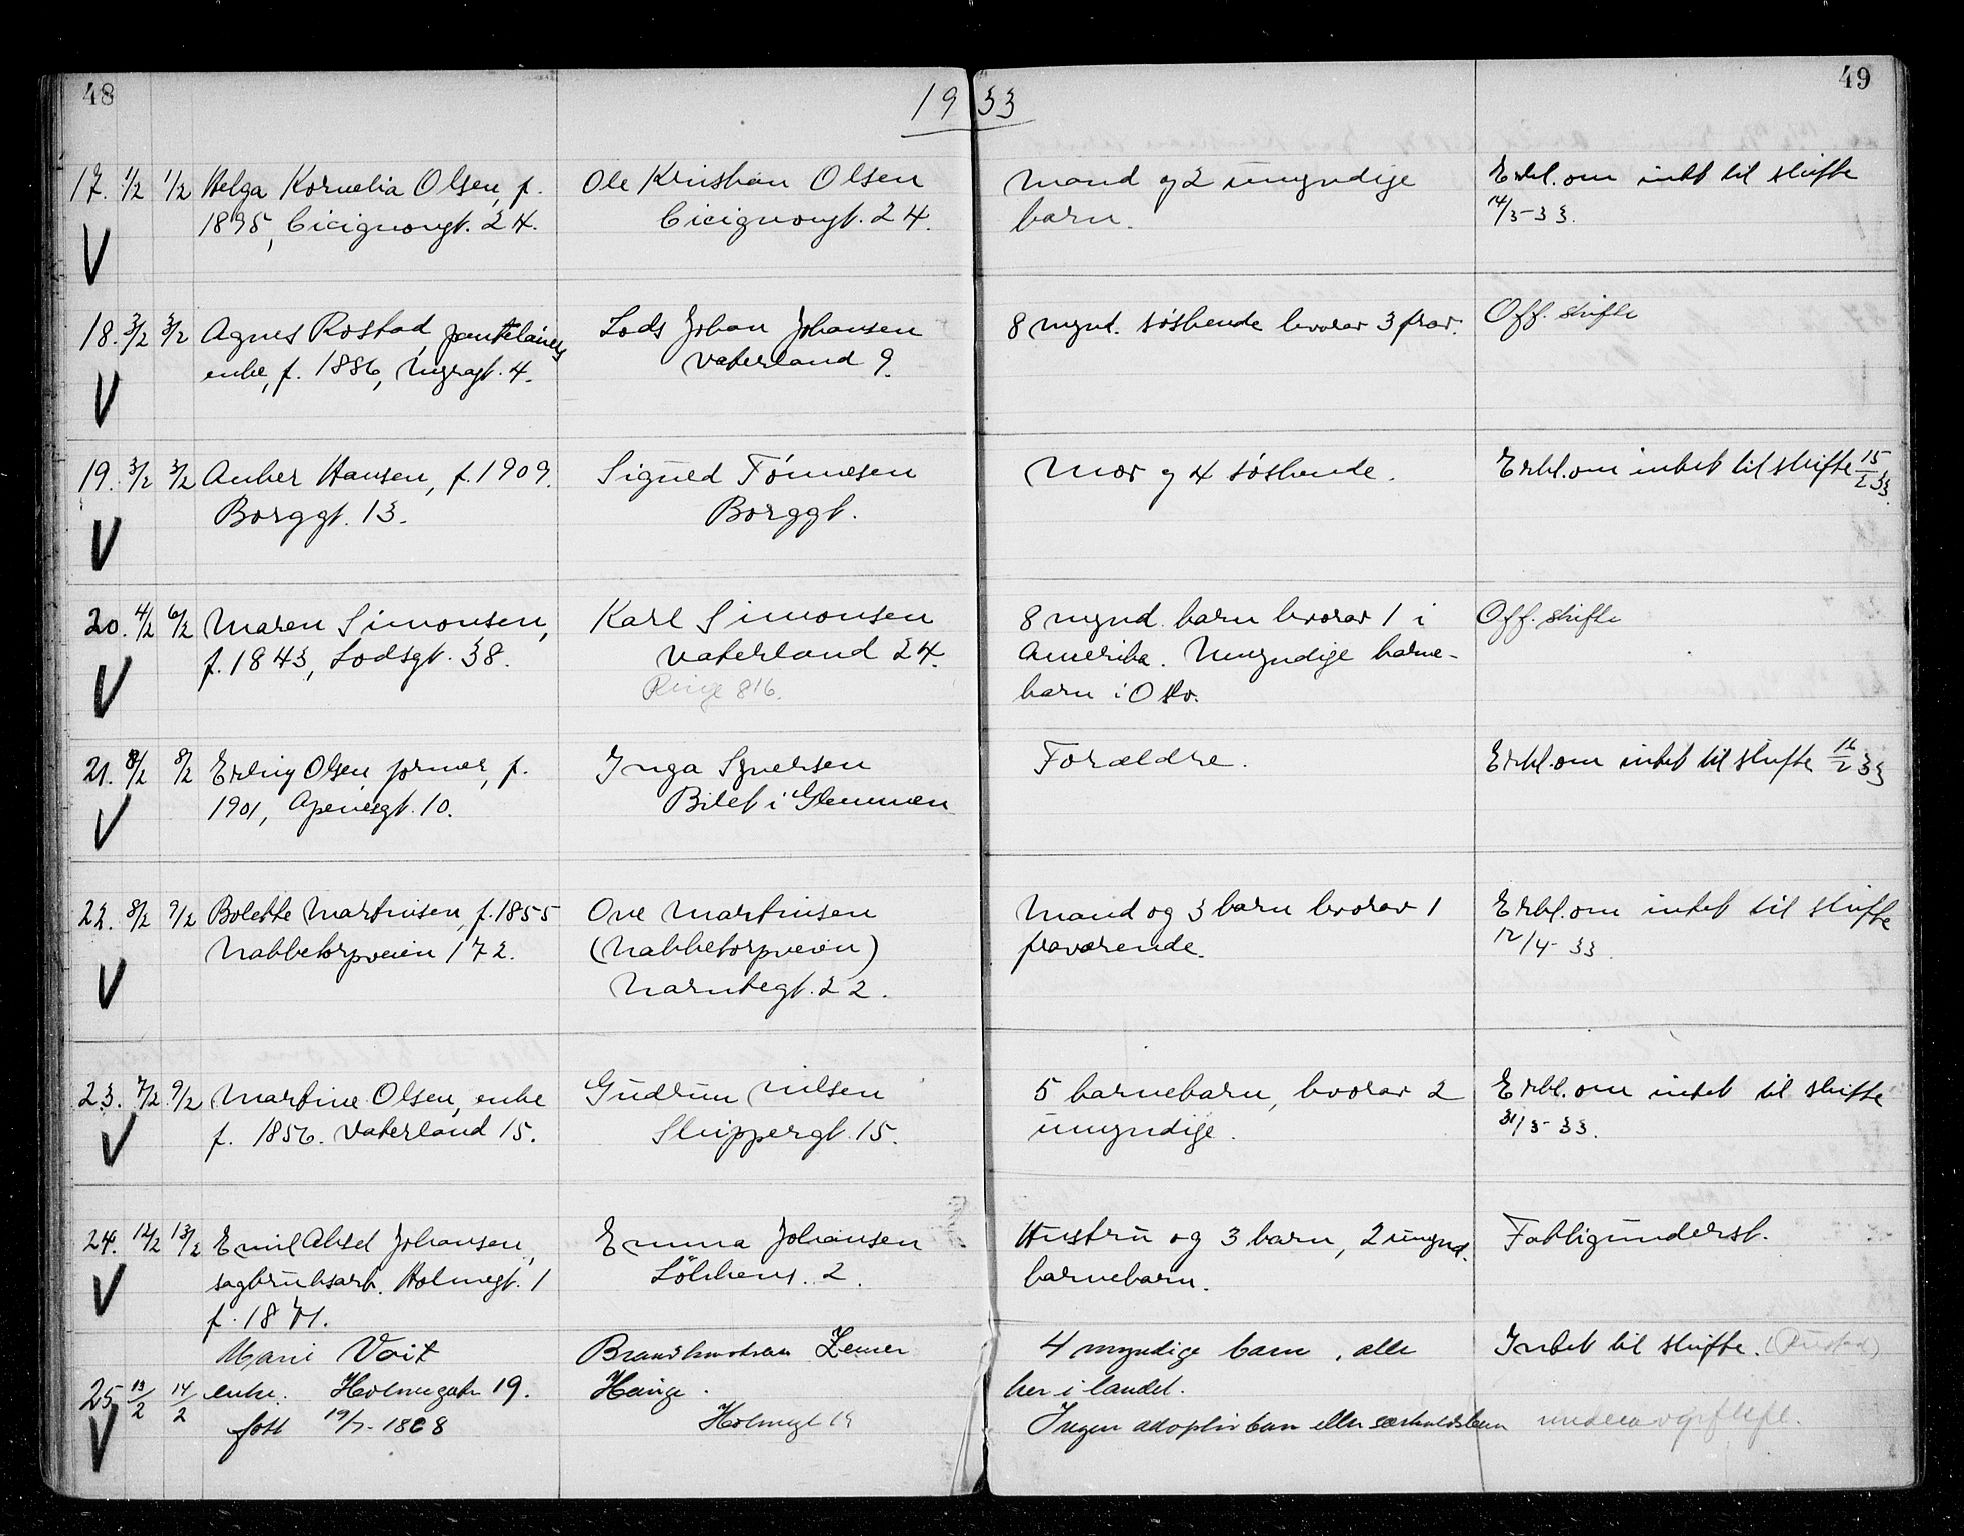 48
1933
49
17. 1/2 1/2 Helga Kornelia Olsen, f. Ole Kristian Olsen Mand og 2 umyndige Erkl. om intet til skifte
1895, Cicignongt. 24. Cicignongt. 24. barn. 14/3-33.
V
18. 3/2 3/2 Agnes Rostad, pantelåners Lods Johan Johansen 8 mynd. søskende hvorav 3 frav. Off. skifte
enke, f. 1886, Nygagt. 4. Vaterland 9.
V
19. 3/2 3/2 Anker Hansen, f. 1909. Sigurd Tønnesen Mor og 4 søskende. Erkl. om intet til skifte 15/2 33.
Borggt. 13. Borggt.
V
20. 4/2 6/2 Maren Simonsen, Karl Simonsen 8 mynd. barn hvorav 1 i Off. skifte
f. 1843, Lodsgt. 38. Vaterland 24. Amerika. Umyndige barne-
V Ringe 816. barn i Oslo.
21. 8/2 8/2 Erling Olsen, former, f. Inga Syversen Forældre. Erkl. om intet til skifte 16/2 33
1901, Apenesgt. 10. Bilet i Glemmen
V
22. 8/2 9/2 Bolette Martinsen, f. 1855 Ove Martinsen Mand og 3 barn hvorav 1 Erkl. om intet til skifte
Nabbetorpveien 172. (Nabbetorpveien) fraværende. 12/4-33.
V Narntegt. 22.
23. 7/2 9/2 Martine Olsen, enke Gudrun Nilsen 5 barnebarn, hvorav 2 Erkl. om intet til skifte
f. 1856. Vaterland 15. Skippergt. 15. umyndige. 31/3-33.
V
24. 12/2 13/2 Emil Aksel Johansen, Emma Johansen Hustru og 3 barn, 2 umynd. Fattigunderst.
sagbruksarb. Holmegt. 1 Løkkens. 2. barnebarn.
V f. 1871.
Marie Voit Brandkonstabel Zeiner 4 myndige barn, alle Intet til skifte. (Rustad)
25 13/2 14/2 enke. Holmegaten 19. Hauge. her i landet.
V født 19/7-1868 Holmegt 19 Ingen adoptivbarn eller særkuldsbarn